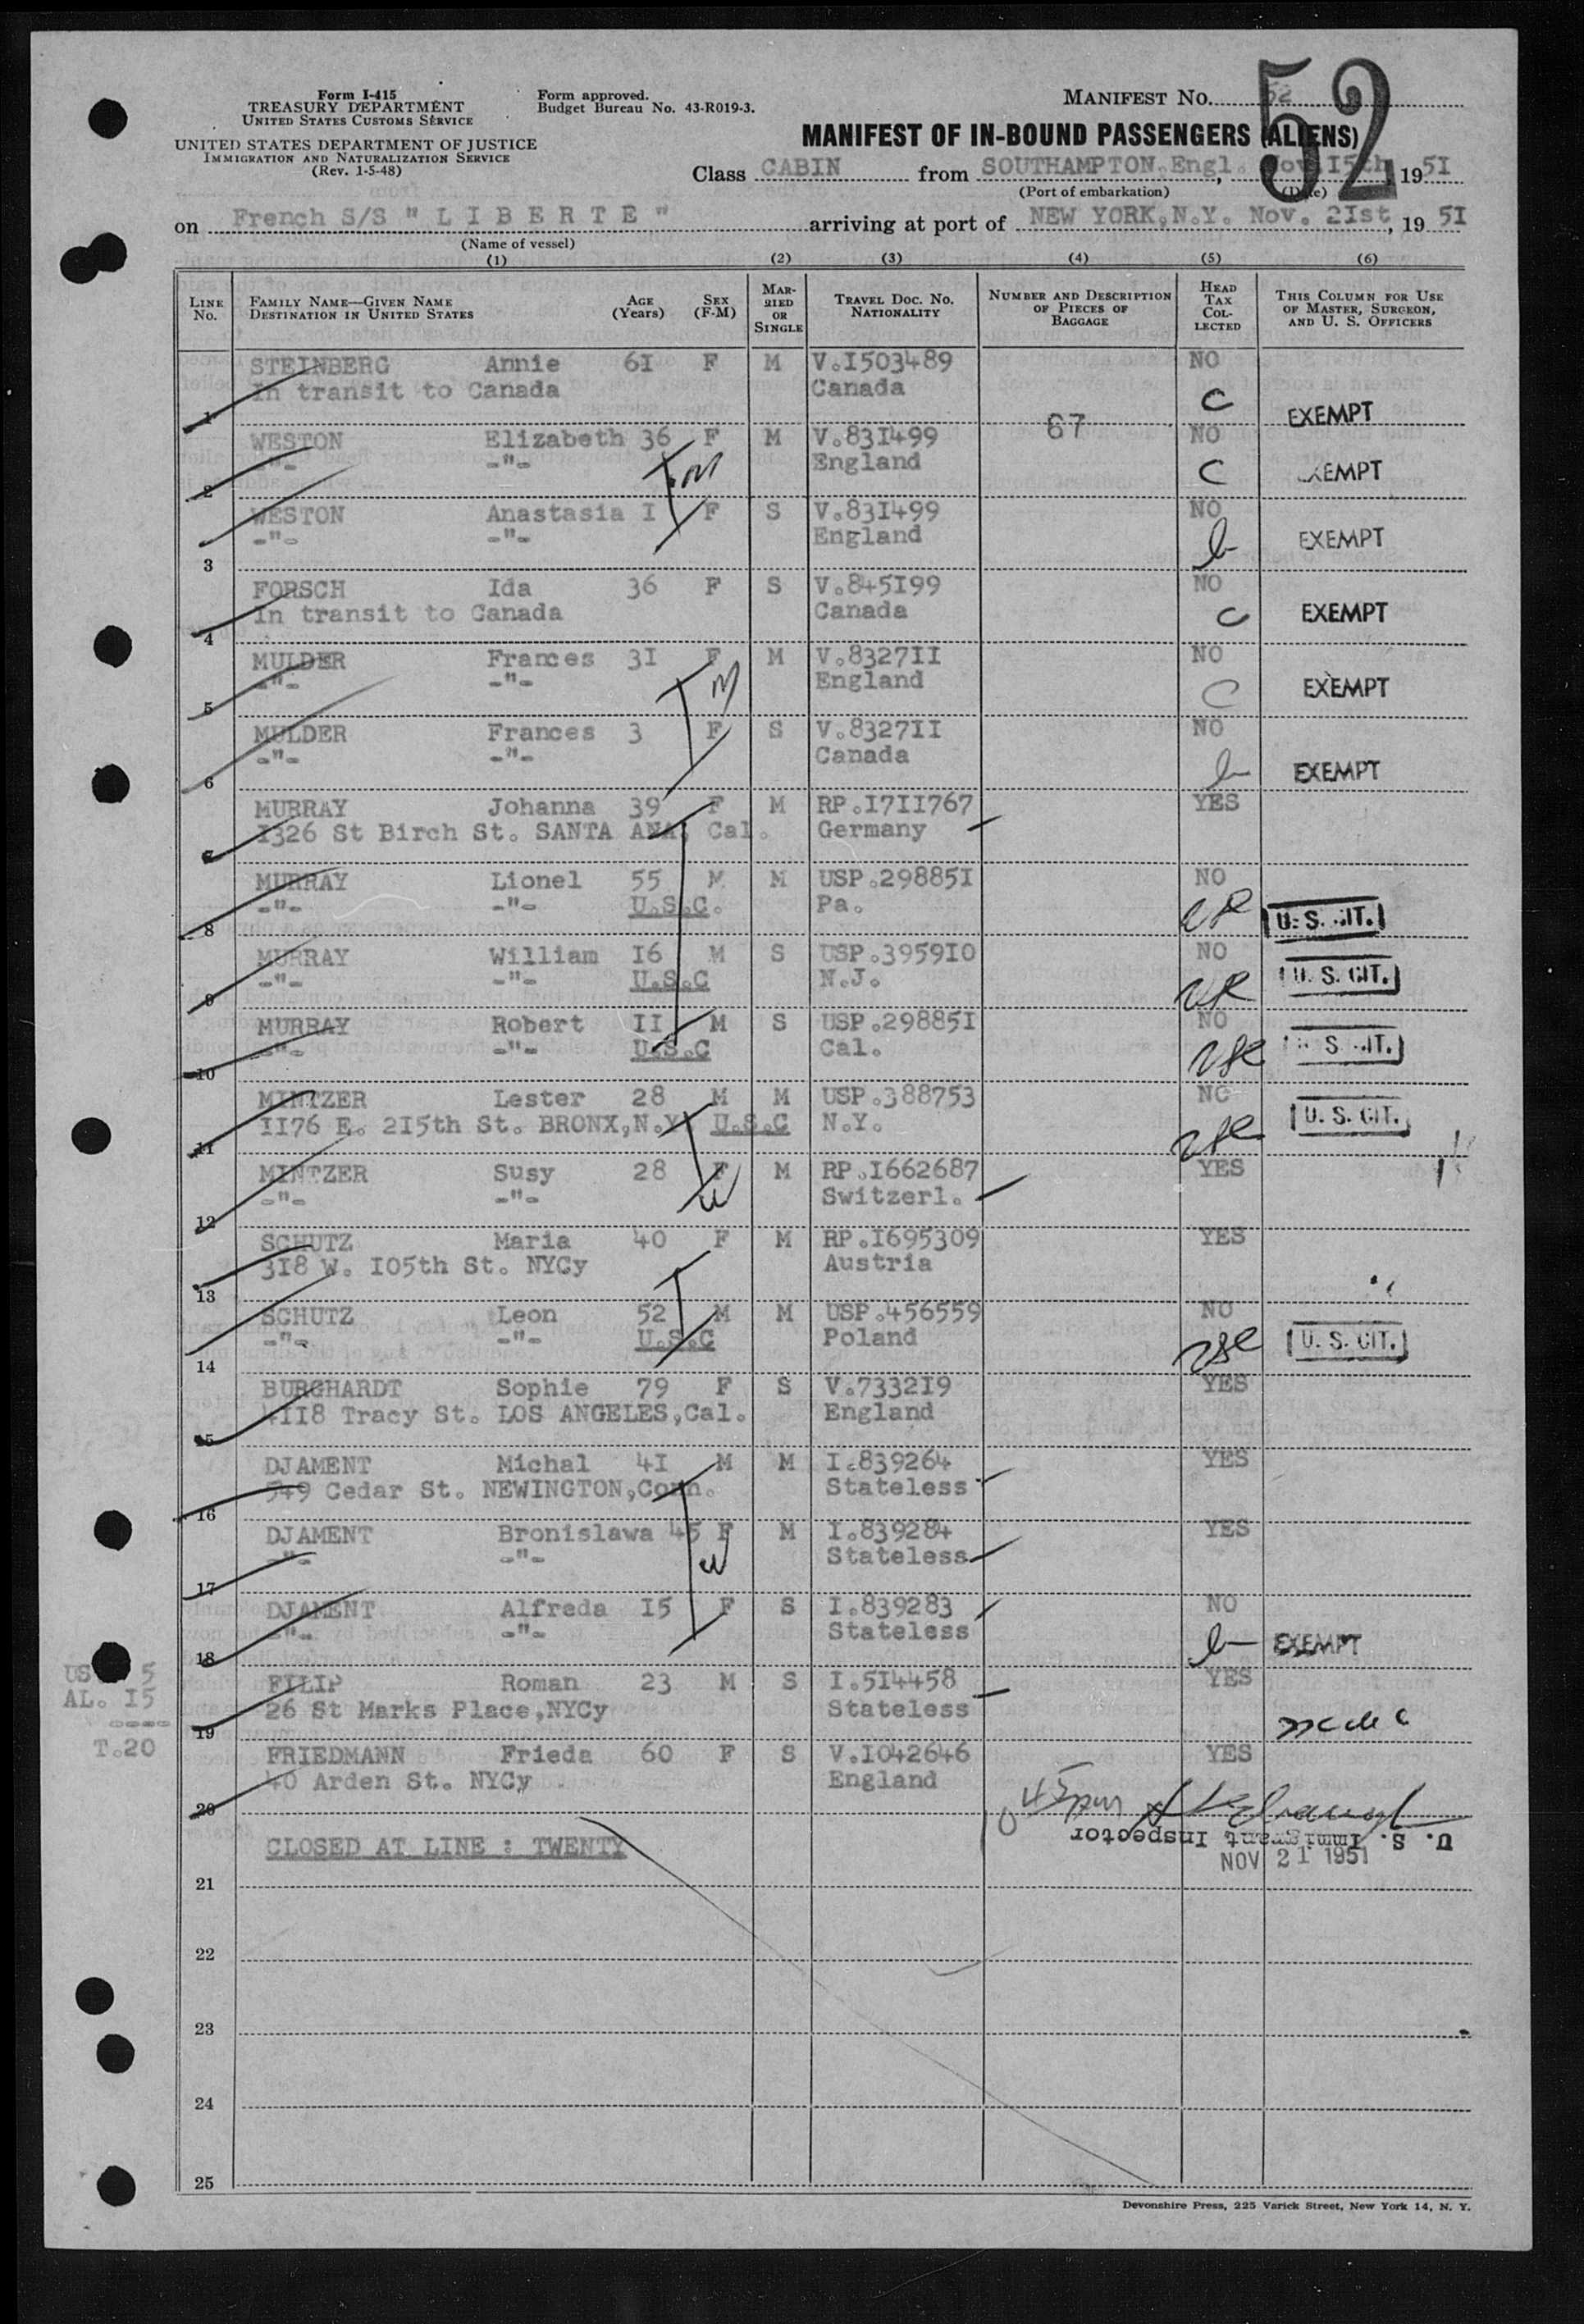 Form I-415
TREASURY DEPARTMENT
UNITED STATES CUSTOMS SERVICE
UNITED STATES DEPARTMENT OF JUSTICE
IMMIGRATION AND NATURALIZATION SERVICE
(Rev. 1-5-48)
Form approved.
Budget Bureau No. 43-R019-3.
MANIFEST NO. 52
52
MANIFEST OF IN-BOUND PASSENGERS (ALIENS)
Class CABIN from SOUTHAMPTON,Engl., Nov.I5th 19 5I
(Port of embarkation) (Date)
on French S/S " L I B E R T E " arriving at port of NEW YORK,N.Y. Nov. 2Ist, 19 5I
(Name of vessel)
(1) (2) (3) (4) (5) (6)
LINK No. FAMILY NAME—GIVEN NAME DESTINATION IN UNITED STATES AGE (Years) SEX (F-M) MARRIED OR SINGLE TRAVEL DOC. NO. NATIONALITY NUMBER AND DESCRIPTION OF PIECES OF BAGGAGE HEAD TAX COLLECTED THIS COLUMN FOR USE OF MASTER, SURGEON, AND U. S. OFFICERS
STEINBERG Annie 6I F M V.I503489 NO
1 In transit to Canada Canada C EXEMPT
WESTON Elizabeth 36 F M V.83I499 67 NO
2 -"- -"- M England C EXEMPT
WESTON Anastasia I F S V.83I499 NO
3 -"- -"- England b EXEMPT
FORSCH Ida 36 F S V.845I99 NO
4 In transit to Canada Canada C EXEMPT
MULDER Frances 3I F M V.8327II NO
5 -"- -"- M England C EXEMPT
MULDER Frances 3 F S V.8327II NO
6 -"- -"- Canada b EXEMPT
MURRAY Johanna 39 F M RP.I7II767 YES
7 I326 St Birch St. SANTA ANA, Cal. Germany
MURRAY Lionel 55 M M USP.29885I NO
8 -"- -"- U.S.C. Pa. U. S. CIT.
MURRAY William I6 M S USP.3959I0 NO
9 -"- -"- U.S.C N.J. U. S. CIT.
MURRAY Robert II M S USP.29885I NO
10 -"- -"- U.S.C Cal. U. S. CIT.
MINTZER Lester 28 M M USP.388753 NO
11 II76 E. 2I5th St. BRONX,N.Y. U.S.C N.Y. U. S. CIT.
MINTZER Susy 28 F M RP.I662687 YES
12 -"- -"- W Switzerl.
SCHUTZ Maria 40 F M RP.I695309 YES
13 3I8 W. I05th St. NYCy Austria
SCHUTZ Leon 52 M M USP.456559 NO
14 -"- -"- U.S.C Poland U. S. CIT.
BURGHARDT Sophie 79 F S V.7332I9 YES
15 4II8 Tracy St. LOS ANGELES,Cal. England
DJAMENT Michal 4I M M I.839264 YES
16 549 Cedar St. NEWINGTON,Conn. Stateless
DJAMENT Bronislawa 45 F M I.839284 YES
17 -"- -"- W Stateless
DJAMENT Alfreda I5 F S I.839283 NO
18 -"- -"- Stateless b EXEMPT
US 5
AL. I5
T.20
FILIP Roman 23 M S I.5I4458 YES
19 26 St Marks Place,NYCy Stateless
FRIEDMANN Frieda 60 F S V.I042646 YES
20 40 Arden St. NYCy England
45pm
U. S. Immigrant Inspector
NOV 21 1951
CLOSED AT LINE : TWENTY
21
22
23
24
25
Devonshire Press, 225 Varick Street, New York 14, N. Y.